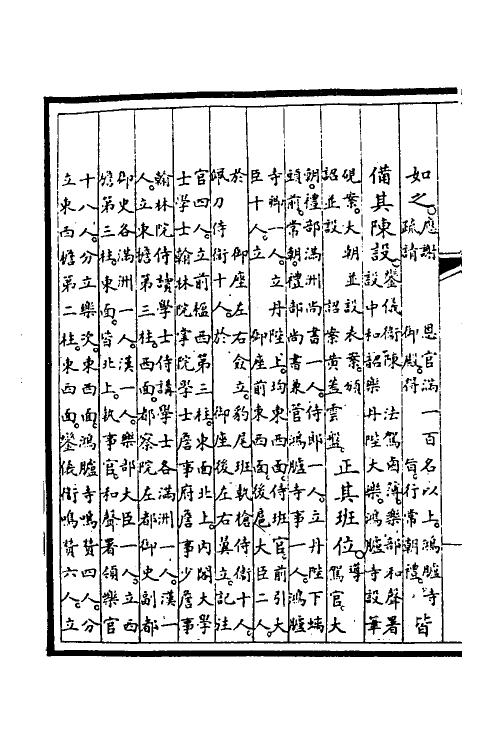 如之。應謝 恩官滿一百名以上。鴻臚寺
疏請 御殿。得 旨。行常朝禮。皆
備其陳設。鑾儀衛陳 法駕鹵簿。樂部和聲署
設中和韶樂丹陛大樂。鴻臚寺設華
硯案。大朝並設表案。頒
詔並設 詔案黃蓋雲盤。正其班位。導 駕官大
朝。禮部滿洲尚書一人。侍郎一人。立丹陛下墀
頭前。常朝。禮部尚書兼管鴻臚寺事一人。鴻臚
寺卿一人。立丹陛上。均東西面。侍班官。前引大
臣十人。立 御座前東西面。後扈大臣二人。
於 御座左右僉立。豹尾班執槍侍衛十人。
佩刀侍衛十人。於 御座後左右翼立。記注
官四人。立前楹西第三柱。東面北上。內閣大學
士學士翰林院掌院學士詹事府詹事少詹事
翰林院侍讀學士侍講學士各滿洲一人。漢一
人。立東檐第三柱西面。都察院左都御史副都
御史各滿洲一人。漢一人。樂部大臣一人。立西
檐第三柱。東面。皆北上。執事官。和聲署領樂官
十八人。分立樂次。東西面。鴻臚寺鳴贊四人。分
立東西檐第二柱。東西面。鑾儀衛鳴贊六人。立